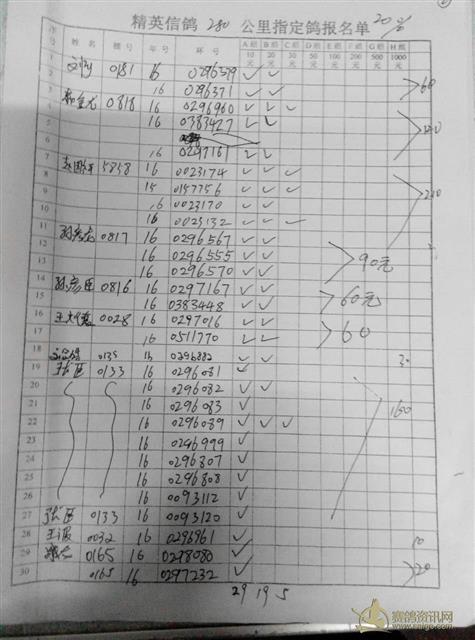 精英信鸽 280 公里指定鸽报名单 20%
序号 姓名 棚号 年号 环号 A组 10元 B组 20元 C组 30元 D组 50元 E组 100元 F组 200元 G组 500元 H组 1000元
1 0181 16 0296379 ✓ ✓
2 16 0296371 ✓ ✓ 60
3 0818 16 0296960 ✓ ✓ ✓
4 16 0383427 ✓ ✓
5
6 16 0297161 ✓ ✓
7 5858 16 0023174 ✓ ✓ ✓
8 15 0157756 ✓ ✓ ✓
9 16 0023170 ✓ ✓
10 16 0023132 ✓ ✓ ✓
11 0817 16 0296567 ✓ ✓
12 16 0296555 ✓ ✓ 90元
13 16 0296570 ✓ ✓
14 0816 16 0297167 ✓ ✓
15 16 0383448 ✓ ✓ 60元
16 0028 16 0297016 ✓ ✓
17 16 0511770 ✓ ✓ 60
18 0135 16 0296882 ✓ ✓ 30
19 0133 16 0296081 ✓
20 16 0296082 ✓ ✓
21 16 0296083 ✓ 160
22 16 0296089 ✓ ✓ ✓
23 16 0296999 ✓
24 16 0296807 ✓
25 16 0296808 ✓
26 16 0093112 ✓
27 0133 16 0093120 ✓
28 0032 16 0296961 ✓ 10
29 0165 16 0298080 ✓
30 0165 16 0297232 ✓ 20
29 19 5
赛鸽资讯网
www.saige.com